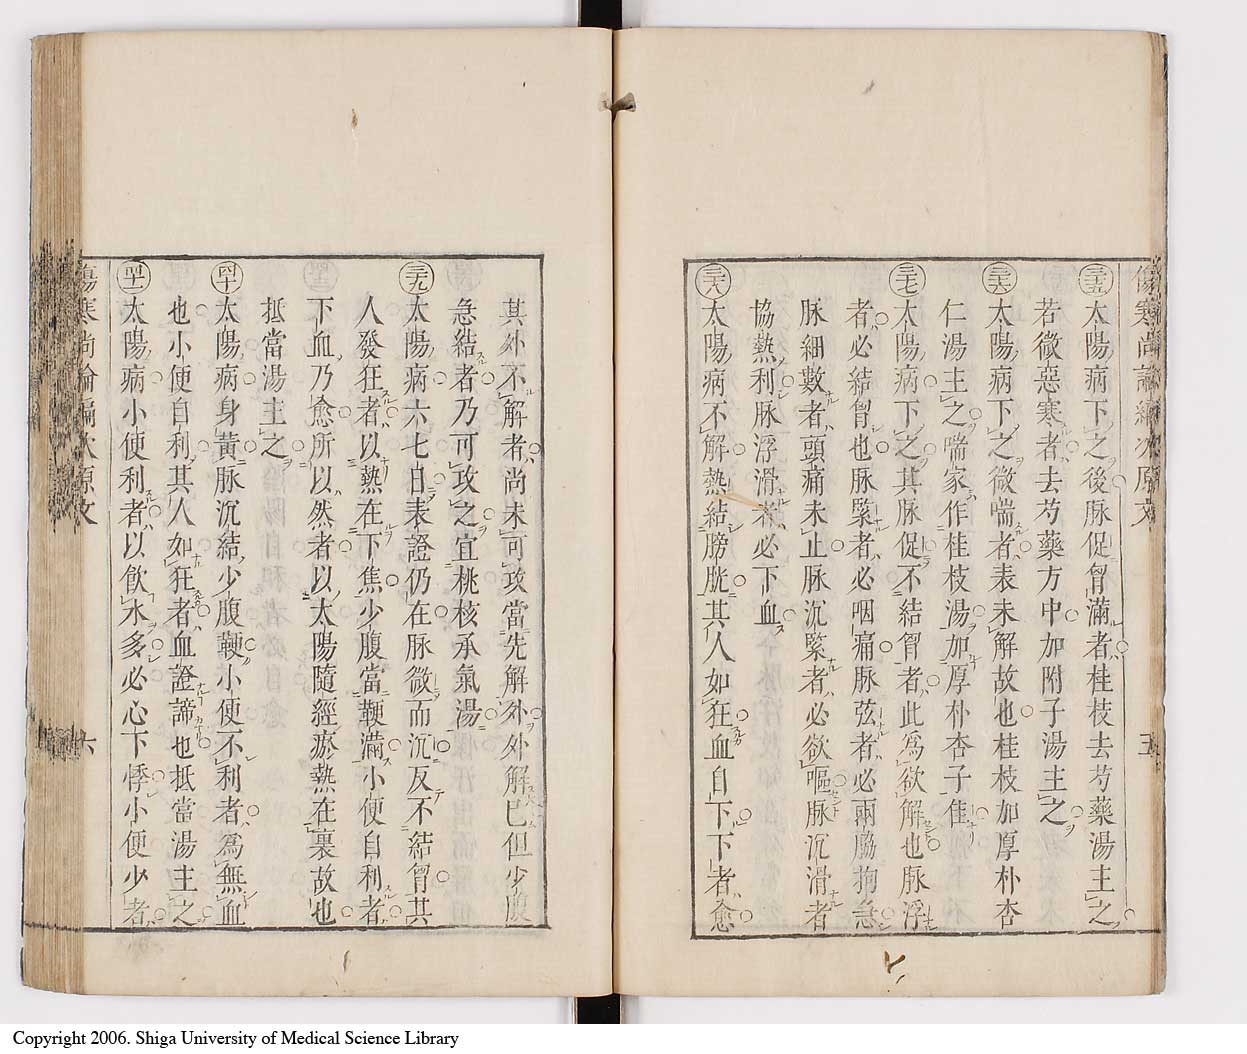 傷寒尚論編次原文
五
㉟太陽病下之後脈促胷滿者桂枝去芍藥湯主之
若微惡寒者去芍藥方中加附子湯主之
㊱太陽病下之微喘者表未解故也桂枝加厚朴杏
仁湯主之喘家作桂枝湯加厚朴杏子佳
㊲太陽病下之其脈促不結胷者此爲欲解也脈浮
者必結胷也脈緊者必咽痛脈弦者必兩脇拘急
脈細數者頭痛未止脈沉緊者必欲嘔脈沉滑者
協熱利脈浮滑者必下血
㊳太陽病不解熱結膀胱其人如狂血自下下者愈
其外不解者尚未可攻當先解外外解已但少腹
急結者乃可攻之宜桃核承氣湯
㊴太陽病六七日表證仍在脈微而沉反不結胷其
人發狂者以熱在下焦少腹當鞕滿小便自利者
下血乃愈所以然者以太陽隨經瘀熱在裏故也
抵當湯主之
㊵太陽病身黃脈沉結少腹鞕小便不利者爲無血
也小便自利其人如狂者血證諦也抵當湯主之
㊶太陽病小便利者以飲水多必心下悸小便少者
傷寒尚論編次原文
六
Copyright 2006. Shiga University of Medical Science Library